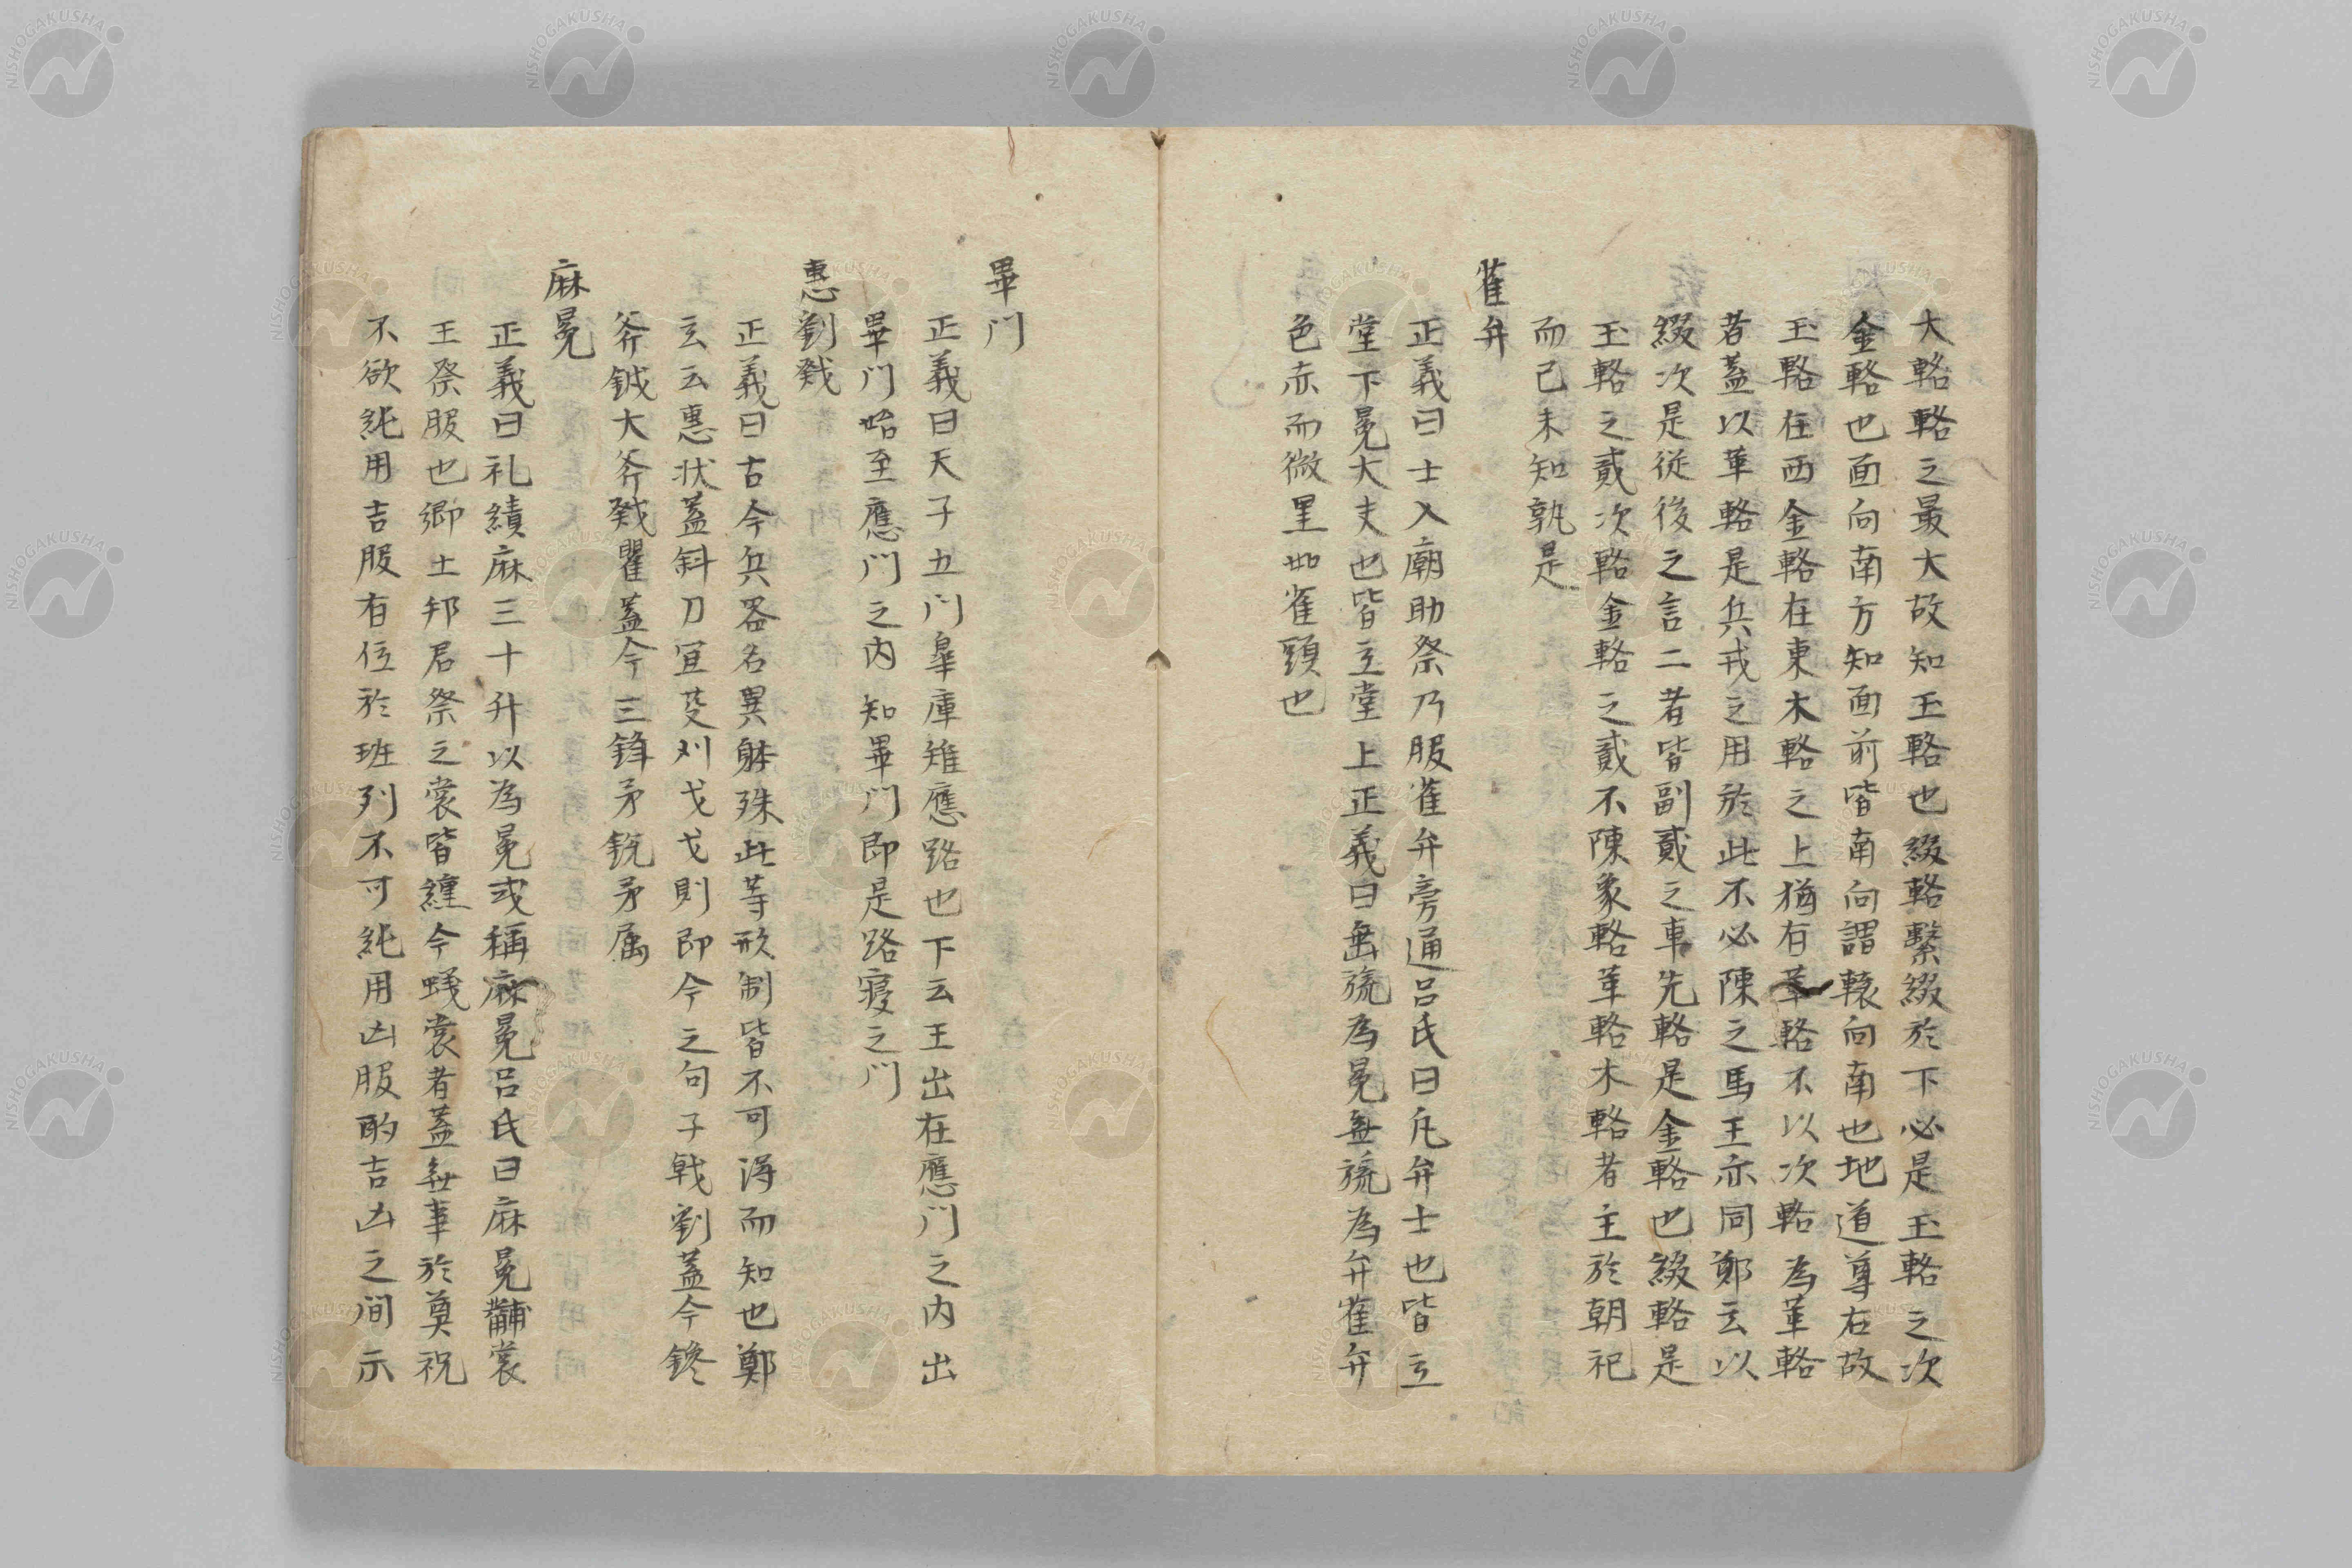 大輅輅之最大故知玉輅也綴輅繫綴於下必是玉輅之次
金輅也面向南方知面前皆南向謂轅向南也地道尊右故
玉輅在西金輅在東木輅之上猶有革輅不以次輅為革輅
者蓋以革輅是兵戎之用於此不必陳之馬王亦同鄭云以
綴次是從後之言二者皆副貳之車先輅是金輅也綴輅是
玉輅之貳次輅金輅之貳不陳象輅革輅木輅者主於朝祀
而已未知孰是
雀弁
正義曰士入廟助祭乃服雀弁旁通呂氏曰凡弁士也皆立
堂下冕大夫也皆立堂上正義曰無旒為冕無旒為弁雀弁
色赤而微黒如雀頭也
畢門
正義曰天子五門皋庫雉應路也下云王出在應門之内出
畢門始至應門之内知畢門即是路寝之門
惠劉戣
正義曰古今兵器名異躰殊此等形制皆不可得而知也鄭
玄云惠状蓋斜刀宜芟刈戈戈則即今之句子戟劉蓋今鑱
斧鉞大斧戣瞿蓋今三鋒矛鋭矛属
麻冕
正義曰礼績麻三十升以為冕或稱麻冕呂氏曰麻冕黼裳
王祭服也卿士邦君祭之裳皆纁今蟻裳者蓋無事於奠祝
不欲純用吉服有位於班列不可純用凶服酌吉凶之间示
NISHOGAKUSHA